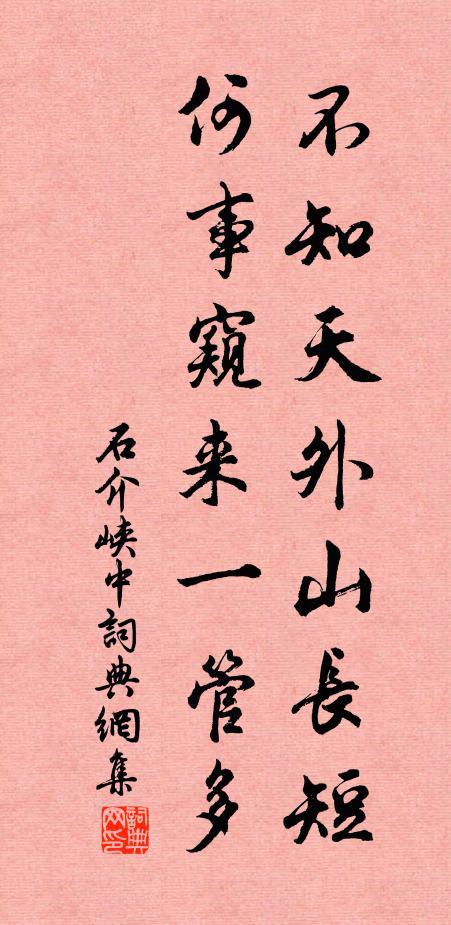 不知天外山長短
何事窺来一管多
石介峽中詞典網集
詞典网印